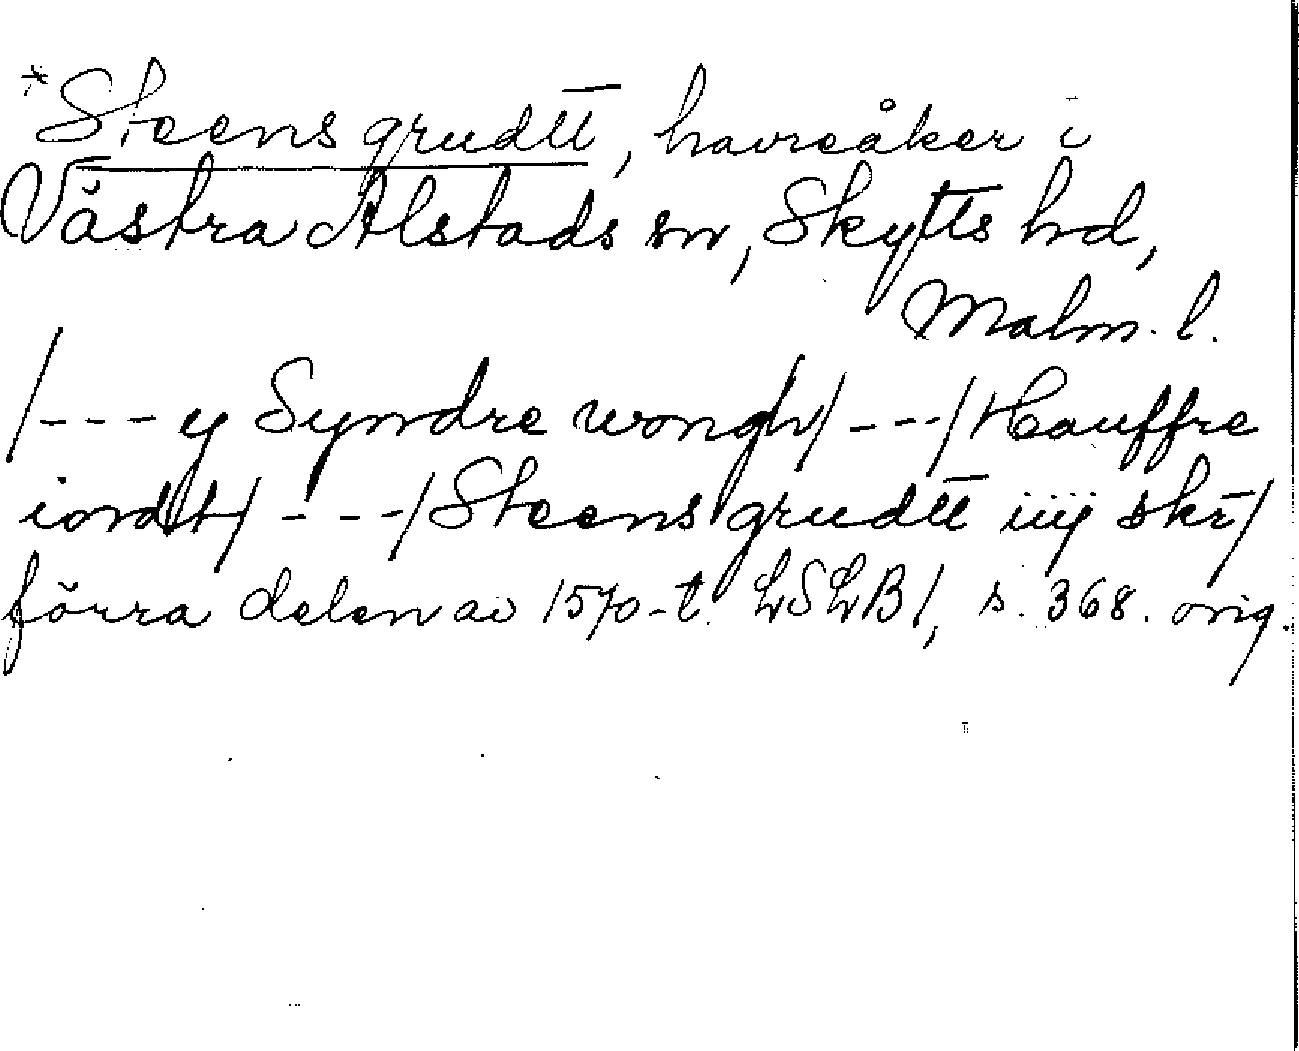 *Steens grudtt, havreåker i
Västra Alstads sn, Skytts hd,
Malm. l.
/--- y Syndre wongh/ ---/ Hauffre
iordt/ ---/ Steens grudtt iiij skr/
förra delen av 1570-t. LSLB1, s. 368. orig.